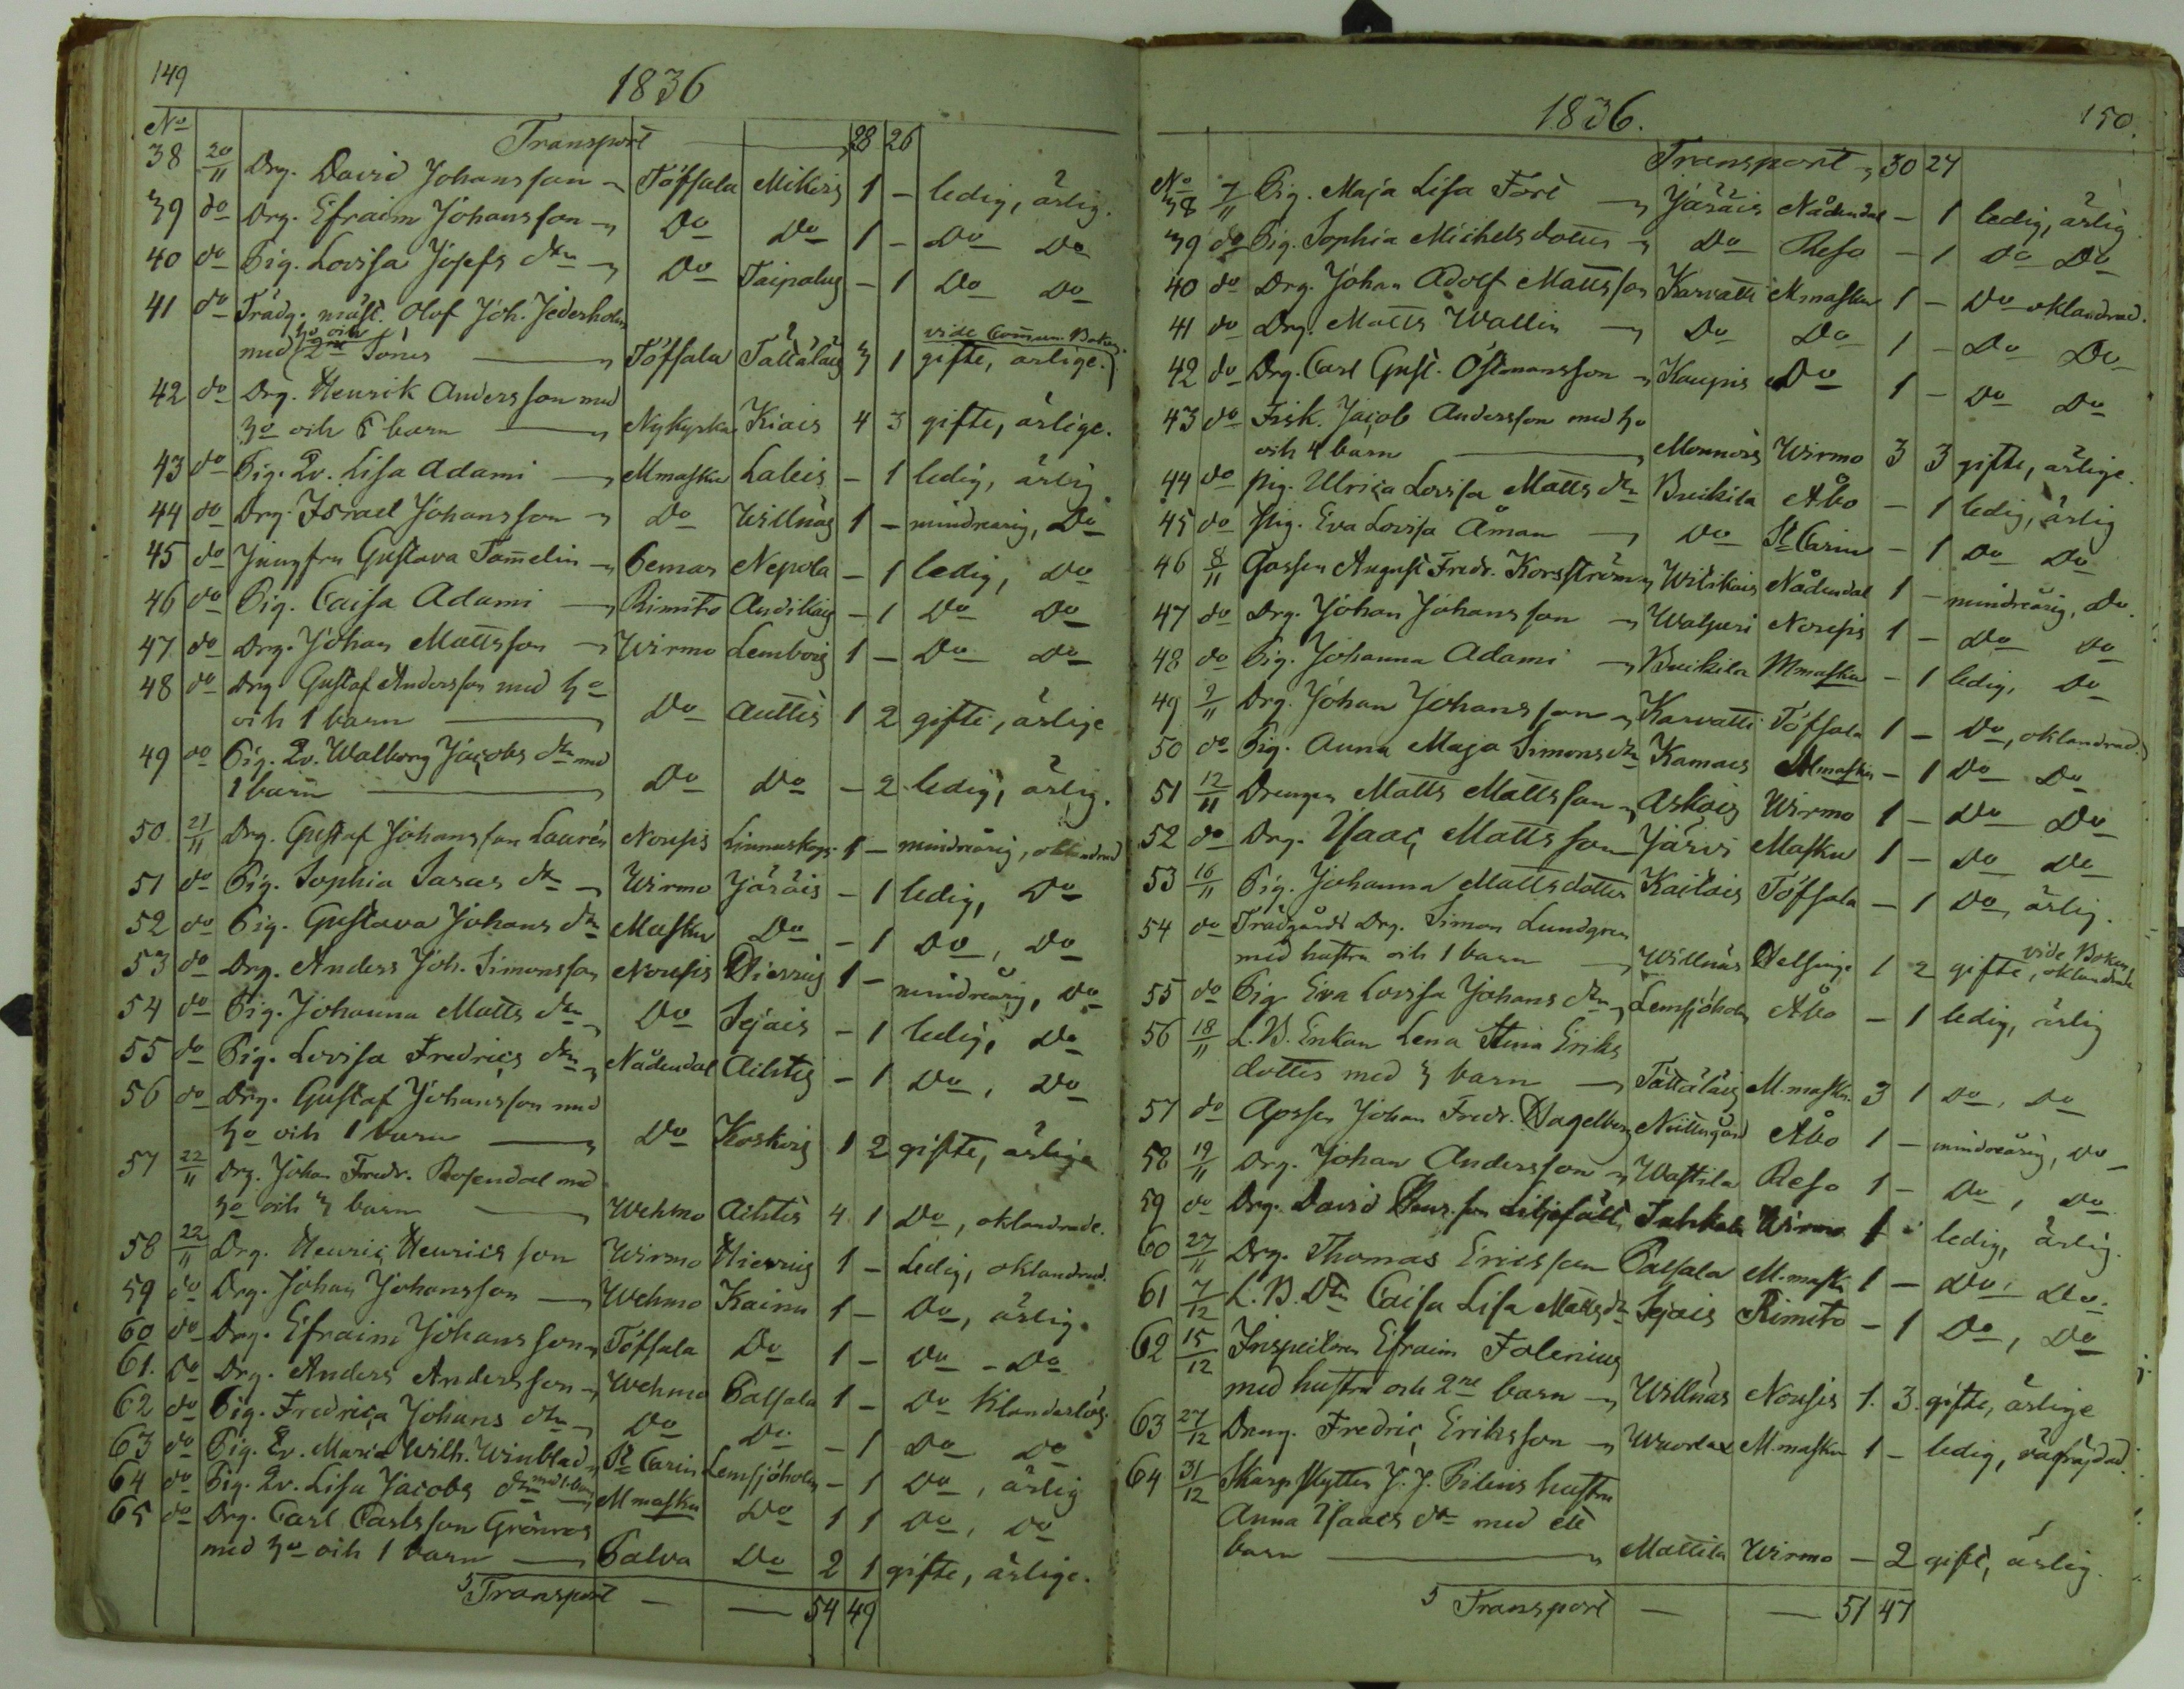 149
1836
No Transport 28 26
38 20/11 Drg. David Johansson Töfsala Mikois 1 - ledig, ärlig.
39 do Drg. Efraim Johansson Do Do 1 - Do Do
40 do Pig. Lovisa Josefs dtr Do Taipalus - 1 Do Do
41 do Trädg. mäst. Olof Joh. Jederholm
med ho och 2ne Söner Töfsala Tattalais 3 1 gifte, ärlige. vide Commun. Boken.
42 do Drg. Henrik Andersson med
ho och 5 barn Nykyrka Kiais 4 3 gifte, ärlige.
43 do Pig. Qv. Lisa Adami Mmasku Laleis - 1 ledig, ärlig
44 do Drg. Israel Johansson Do Willnäs 1 - mindreårig, Do
45 do Jungfru Gustava Tamelin Pemar Nepola - 1 ledig, Do
46 do Pig. Caisa Adami Rimito Audikais - 1 Do Do
47 do Drg. Johan Mattsson Wirmo Lembois 1 - Do Do
48 do Drg. Gustaf Andersson med ho
och 1 barn Do Auttis 1 2 gifte, ärlige
49 do Pig. Qv. Walborg Jacobs dtr med
1 barn Do Do - 2 ledig, ärlig.
50 21/11 Drg. Gustaf Johansson Laurén Nousis Linnuskoys 1 - mindreårig, oklandrad
51 do Pig. Sophia Saras dtr Wirmo Järäis - 1 ledig, Do
52 do Pig. Gustava Johans dtr Masku Do - 1 Do, Do
53 do Drg. Anders Joh. Simonsson Nousis Hierrus 1 - mindreårig, Do
54 do Pig. Johanna Matts dtr Do Sejais - 1 ledig, Do
55 do Pig. Lovisa Fredrics dtr Nådendal Aihtis - 1 Do, Do
56 do Drg. Gustaf Johansson med
ho och 1 barn Do Koskois 1 2 gifte, ärlige
57 22/11 Drg. Johan Fredr. Rosendal med
ho och 3 barn Wehmo Aihtis 4 1 Do, oklandrade.
58 22/11 Drg. Henric Henricsson Wirmo Hierrus 1 - Ledig, oklandrad.
59 do Drg. Johan Johansson Wehmo Kainu 1 - Do, ärlig.
60 do Drg. Efraim Johansson Töfsala Do 1 - Do - Do
61. Do Drg. Anders Andersson Wehmo Palsala 1 - Do Klanderlös.
62 do Pig. Fredrica Johans dtr Do Do - 1 Do Do
63 do Pig. Qv. Maria Wilh. Winblad St Carin Lemsjöholm - 1 Do, ärlig
64 do Pig. Qv. Lisa Jacobs dtr med 1 barn Mmasku Do 1 1 Do, Do
65 do Drg. Carl Carlsson Grönros
med ho och 1 barn Palva Do 2 1 gifte, ärlige.
Transport 54 49
1836.
150.
Transport 30 27
No
38 7/11 Pig. Maja Lisa Fort Järäis Nådendal - 1 ledig, ärlig
39 do Pig. Sophia Michelsdotter Do Reso - 1 Do Do
40 do Drg. Johan Adolf Mattsson Karvatti Mmasku 1 - Do oklandrad.
41 do Drg. Matts Wallin Do Do 1 - Do Do
42 do Drg. Carl Gust. Östmansson Kaupis Do 1 - Do Do
43 do Fisk. Jacob Andersson med ho
och 4 barn Monnois Wirmo 3 3 gifte, ärlige.
44 do Pig. Ulrica Lovisa Matts dtr Buikila Åbo - 1 ledig, ärlig
45 do Pig. Eva Lovisa Åman Do St Carin - 1 Do Do
46 8/11 Gossen August Fredr. Korsström Wilikais Nådendal 1 - mindreårig, Do.
47 do Drg. Johan Johansson Walguri Nousis 1 - Do Do
48 do Pig. Johanna Adami Buikila Mmasku - 1 ledig, Do
49 9/11 Drg. Johan Johansson Karvatti Töfsala 1 - Do, oklandrad.
50 do Pig. Anna Maja Simonsdtr Kamais Mmasku - 1 Do Do
51 12/11 Drengen Matts Mattsson Askois Wirmo 1 - Do Do
52 do Drg. Isaac Mattsson Järvi Masku 1 - Do Do
53 16/11 Pig. Johanna Mattsdotter Kailais Töfsala - 1 Do, ärlig.
54 do Trädgårds Drg. Simon Lundgren
med hustru och 1 barn Willnäs Helsinge 1 2 gifte, oklandrade vide Boken
55 do Pig Eva Lovisa Johans dtr Lemsjöholm Åbo - 1 ledig, ärlig
56 18/11 L. B. Enkan Lena Stina Eriks
dotter med 3 barn Tattalais M.masku 3 1 Do, Do
57 do Gossen Johan Fredr. Hagelberg Neitlingård Åbo 1 - mindreårig, Do
58 19/11 Drg. Johan Andersson Wastila Reso 1 - Do, Do
59 do Drg. David Henr.son Liljefält Wirmo 1 - ledig, ärlig.
60 27/11 Drg. Thomas Ericsson Palsala M.masku 1 - Do, Do.
61 7/12 L. B. Dtr Caisa Lisa Mattsdr Sejais Rimito - 1 Do, Do
62 15/12 Inspectoren Efraim Folenius
med hustru och 2ne barn Willnäs Nousis 1. 3. gifte, ärlige
63 27/12 Dreng. Fredric Eriksson Wuorlax M.masku 1 - ledig, väfräjdad.
64 31/12 Skarpskytten J. J. Pileins hustru
Anna Isaacs dtr med ett
barn Mattila Wirmo - 2 gift, ärlig.
Transport 51 47